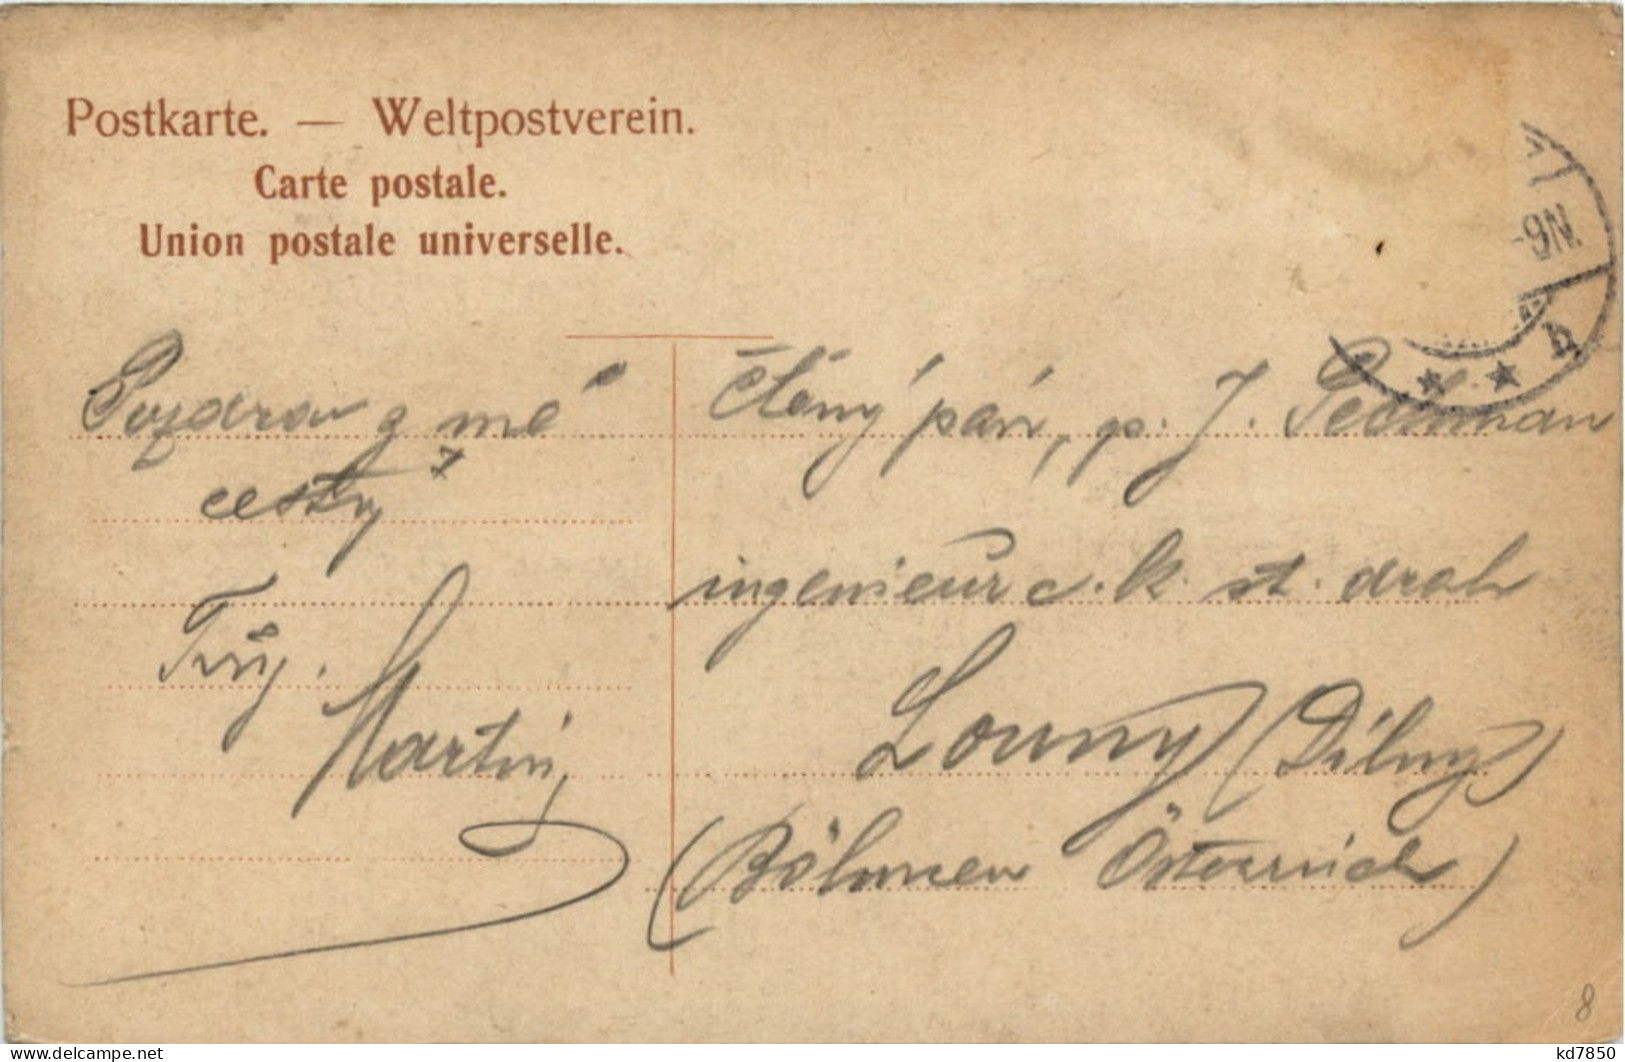 Postkarte. — Weltpostverein.
Carte postale.
Union postale universelle.
-9N.
b
Pozdrav z mé
cesty
Tvůj.
Martin
Ctěný pán, p. J. Pechman
ingenieur c. k. st. drah
Louny (Dílny)
(Böhmen Österreich)
8
kd7850